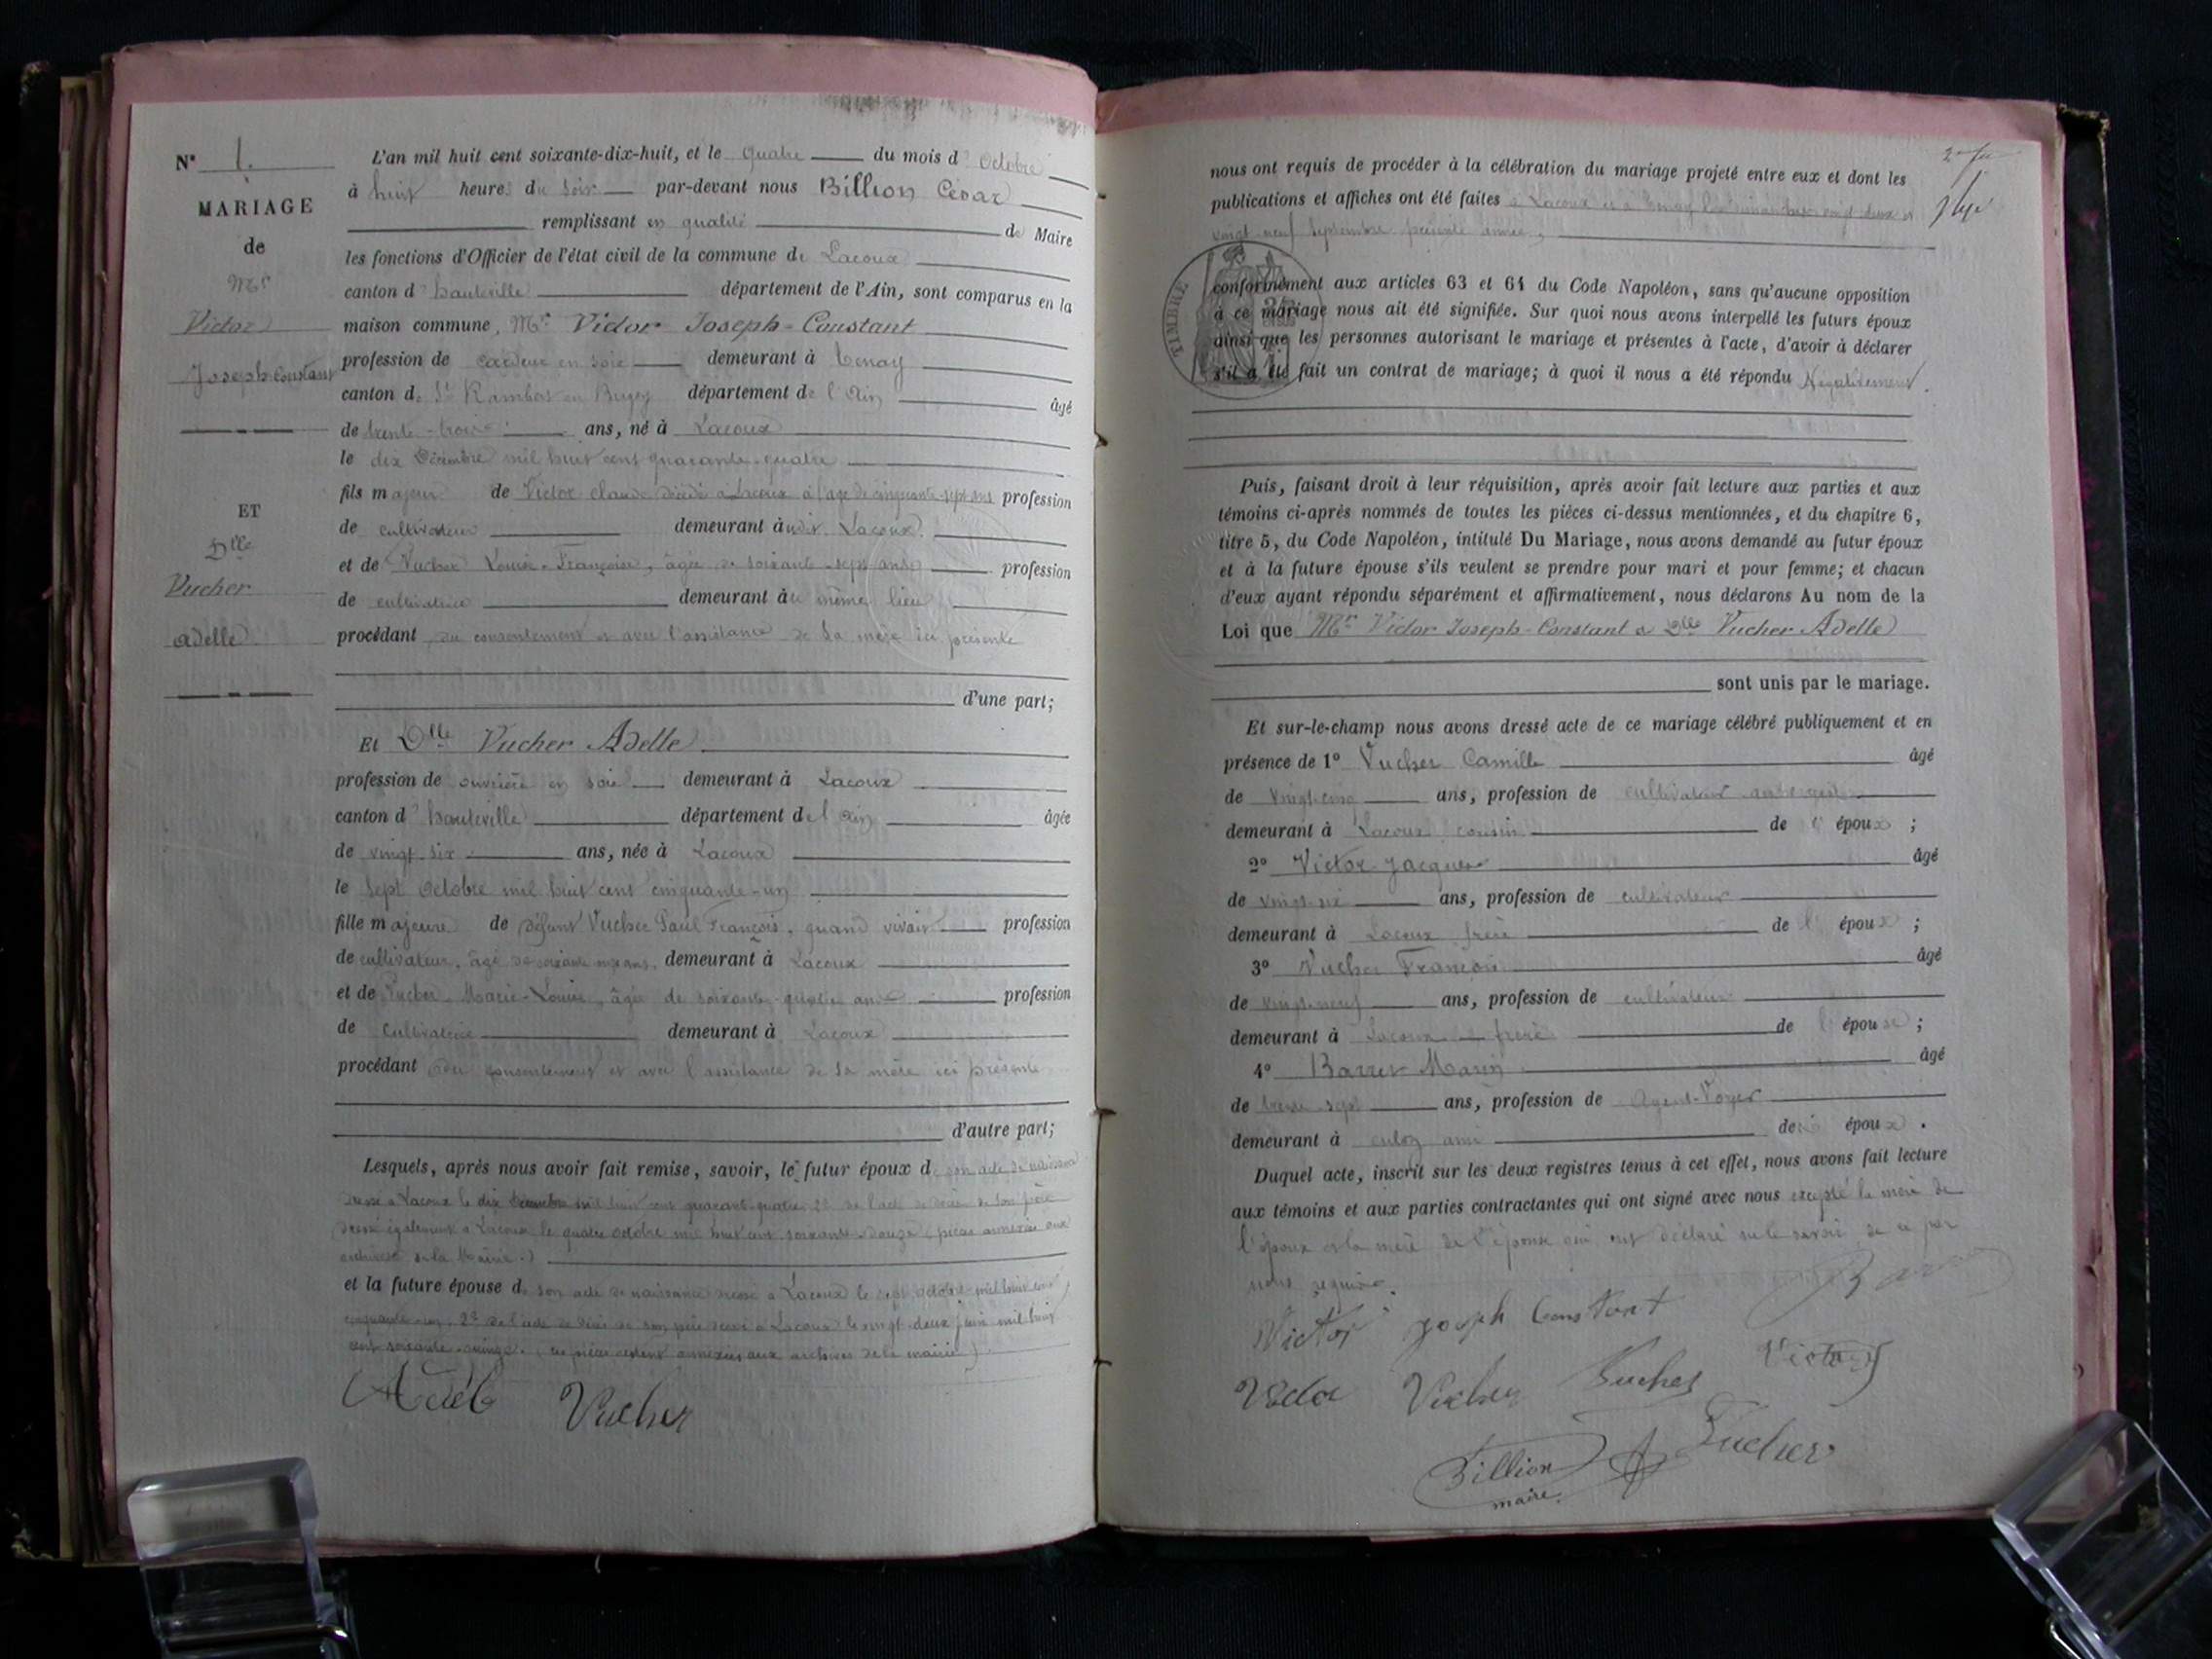 N° 1.
MARIAGE
de
Mr
Victor
Joseph-Constant
ET
Dlle
Vucher
Adelle
L'an mil huit cent soixante-dix-huit, et le quatre du mois d'Octobre
à huit heures du soir par-devant nous Billion César
remplissant en qualité de Maire
les fonctions d'Officier de l'état civil de la commune de Lacoux
canton d'hauteville département de l'Ain, sont comparus en la
maison commune, Mr Victor Joseph-Constant
profession de cardeur en soie demeurant à Tenay
canton de St Rambert en Bugey département de l'Ain âgé
de trente-trois ans, né à Lacoux
le dix Décembre mil huit cent quarante-quatre
fils majeur de Victor Claude décédé à Lacoux à l'âge de cinquante-sept ans profession
de cultivateur demeurant à Lacoux
et de Vucher Louise-Françoise, âgée de soixante-sept ans profession
de cultivatrice demeurant au même lieu
procédant du consentement et avec l'assistance de sa mère ici présente
d'une part;
Et Dlle Vucher Adelle
profession de ouvrière en soie demeurant à Lacoux
canton d'hauteville département de l'ain âgée
de vingt-six ans, née à Lacoux
le sept Octobre mil huit cent cinquante-un
fille majeure de défunt Vucher Paul François, quand vivait profession
de cultivateur, âgé de soixante demeurant à Lacoux
et de Vucher Marie-Louise, âgée de soixante-quatre ans profession
de cultivatrice demeurant à Lacoux
procédant du consentement et avec l'assistance de sa mère ici présente
d'autre part;
Lesquels, après nous avoir fait remise, savoir, le futur époux de son acte de naissance
dressé à Lacoux le dix Décembre mil huit cent quarante-quatre 2° de l'acte de décès de son père
dressé également à Lacoux le quatre octobre mil huit cent soixante-douze (pièces annexées aux
archives de la Mairie.)
et la future épouse de son acte de naissance dressé à Lacoux le sept octobre mil huit cent
cinquante-un, 2° de l'acte de décès de son père dressé à Lacoux le vingt deux juin mil huit
cent soixante-quinze. (ces pièces restent annexées aux archives de la mairie)
Adèle Vucher
nous ont requis de procéder à la célébration du mariage projeté entre eux et dont les
publications et affiches ont été faites à Lacoux et à Tenay les dimanches vingt-deux et
vingt-neuf Septembre présente année,
TIMBRE
conformément aux articles 63 et 64 du Code Napoléon, sans qu'aucune opposition
à ce mariage nous ait été signifiée. Sur quoi nous avons interpellé les futurs époux
ainsi que les personnes autorisant le mariage et présentes à l'acte, d'avoir à déclarer
s'il a été fait un contrat de mariage; à quoi il nous a été répondu Négativement.
Puis, faisant droit à leur réquisition, après avoir fait lecture aux parties et aux
témoins ci-après nommés de toutes les pièces ci-dessus mentionnées, et du chapitre 6,
titre 5, du Code Napoléon, intitulé Du Mariage, nous avons demandé au futur époux
et à la future épouse s'ils veulent se prendre pour mari et pour femme; et chacun
d'eux ayant répondu séparément et affirmativement, nous déclarons Au nom de la
Loi que Mr Victor Joseph-Constant & Dlle Vucher Adelle
sont unis par le mariage.
Et sur-le-champ nous avons dressé acte de ce mariage célébré publiquement et en
présence de 1° Vucher Camille âgé
de vingt-cinq ans, profession de cultivateur
demeurant à Lacoux cousin de l'époux ;
2° Victor Jacques âgé
de vingt-six ans, profession de cultivateur
demeurant à Lacoux frère de l'époux ;
3° Vucher François âgé
de vingt-neuf ans, profession de cultivateur
demeurant à Lacoux frère de l'épouse ;
4° Barret Marin âgé
de trente-sept ans, profession de Agent-Voyer
demeurant à culoz ami de l'époux .
Duquel acte, inscrit sur les deux registres tenus à cet effet, nous avons fait lecture
aux témoins et aux parties contractantes qui ont signé avec nous excepté la mère de
l'époux et la mère de l'épouse qui ont déclaré ne le savoir de ce par
nous requises.
Victor joseph Constant
Victor Vucher Vucher Victor
Vucher
Billion
maire